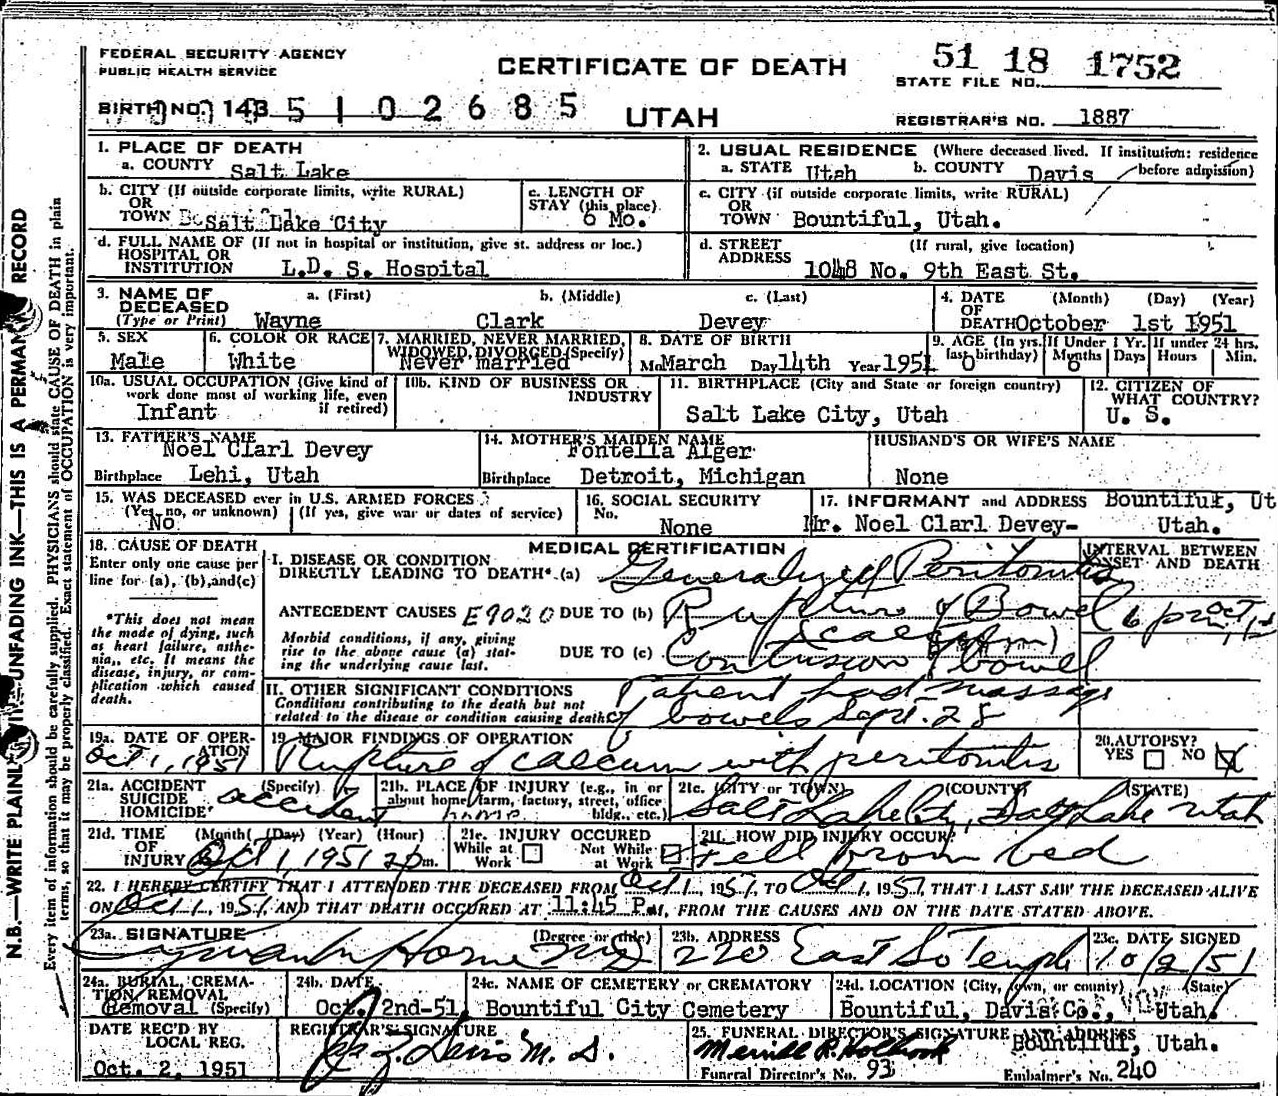 FEDERAL SECURITY AGENCY
PUBLIC HEALTH SERVICE
CERTIFICATE OF DEATH
51 18 1752
STATE FILE NO.
BIRTH NO. 143 5 1 0 2 6 8 5
UTAH
REGISTRAR'S NO. 1887
1. PLACE OF DEATH
a. COUNTY Salt Lake
2. USUAL RESIDENCE (Where deceased lived. If institution: residence before admission)
a. STATE Utah b. COUNTY Davis
b. CITY (If outside corporate limits, write RURAL)
OR
TOWN Salt Lake City
c. LENGTH OF
STAY (this place)
6 Mo.
c. CITY (if outside corporate limits, write RURAL)
OR
TOWN Bountiful, Utah.
d. FULL NAME OF (If not in hospital or institution, give st. address or loc.)
HOSPITAL OR
INSTITUTION L.D. S. Hospital
d. STREET (If rural, give location)
ADDRESS 1048 No. 9th East St.
3. NAME OF
DECEASED
(Type or Print)
a. (First) b. (Middle) c. (Last)
Wayne Clark Devey
4. DATE (Month) (Day) (Year)
OF
DEATH October 1st 1951
5. SEX
Male
6. COLOR OR RACE
White
7. MARRIED, NEVER MARRIED,
WIDOWED, DIVORCED (Specify)
Never married
8. DATE OF BIRTH
Mo March Day 14th Year 1951
9. AGE (In yrs. last birthday)
0
If Under 1 Yr.
Months Days
6
If under 24 hrs.
Hours Min.
10a. USUAL OCCUPATION (Give kind of
work done most of working life, even
if retired)
Infant
10b. KIND OF BUSINESS OR
INDUSTRY
11. BIRTHPLACE (City and State or foreign country)
Salt Lake City, Utah
12. CITIZEN OF
WHAT COUNTRY?
U. S.
13. FATHER'S NAME
Noel Clarl Devey
Birthplace Lehi, Utah
14. MOTHER'S MAIDEN NAME
Fontella Alger
Birthplace Detroit, Michigan
HUSBAND'S OR WIFE'S NAME
None
15. WAS DECEASED ever in U.S. ARMED FORCES
(Yes, no, or unknown) (If yes, give war or dates of service)
No
16. SOCIAL SECURITY
No.
None
17. INFORMANT and ADDRESS Bountiful, Ut
Mr. Noel Clarl Devey- Utah.
18. CAUSE OF DEATH
Enter only one cause per
line for (a), (b), and (c)
*This does not mean
the mode of dying, such
as heart failure, asthe-
nia, etc. It means the
disease, injury, or com-
plication which caused
death.
MEDICAL CERTIFICATION
INTERVAL BETWEEN
ONSET AND DEATH
I. DISEASE OR CONDITION
DIRECTLY LEADING TO DEATH* (a) Generalized Peritonitis
ANTECEDENT CAUSES E9020 DUE TO (b) Rupture of Bowel
Morbid conditions, if any, giving
rise to the above cause (a) stat-
ing the underlying cause last.
DUE TO (c) Contusion of bowel
II. OTHER SIGNIFICANT CONDITIONS
Conditions contributing to the death but not
related to the disease or condition causing death
Patient had massage
of bowels Sept. 28
19a. DATE OF OPER-
ATION
Oct 1, 1951
19 MAJOR FINDINGS OF OPERATION
Rupture of caecum with peritonitis
20. AUTOPSY?
YES NO X
21a. ACCIDENT (Specify)
SUICIDE
HOMICIDE
accident
21b. PLACE OF INJURY (e.g., in or
about home, farm, factory, street, office
bldg., etc.)
home
21c. (CITY or TOWN) (COUNTY) (STATE)
Salt Lake City, Salt Lake Utah
21d. TIME (Month) (Day) (Year) (Hour)
OF
INJURY Oct 1, 1951 2 pm.
21e. INJURY OCCURED
While at Work Not While at Work
21f. HOW DID INJURY OCCUR?
Fell from bed
22. I HEREBY CERTIFY THAT I ATTENDED THE DECEASED FROM Oct 1, 1951, TO Oct 1, 1951, THAT I LAST SAW THE DECEASED ALIVE
ON Oct 1, 1951 AND THAT DEATH OCCURED AT 11:45 P.M, FROM THE CAUSES AND ON THE DATE STATED ABOVE.
23a. SIGNATURE (Degree or title)
Horne MD
23b. ADDRESS
220 East So Temple
23c. DATE SIGNED
10/2/51
24a. BURIAL, CREMA-
TION, REMOVAL
Removal (Specify)
24b. DATE
Oct. 2nd-51
24c. NAME OF CEMETERY or CREMATORY
Bountiful City Cemetery
24d. LOCATION (City, town, or county) (State)
Bountiful, Davis Co., Utah.
DATE REC'D BY
LOCAL REG.
Oct. 2, 1951
REGISTRAR'S SIGNATURE
25. FUNERAL DIRECTOR'S SIGNATURE AND ADDRESS
Merrill R. Holbrook Bountiful, Utah.
Funeral Director's No. 93
Embalmer's No. 240
N.B.—WRITE PLAINLY UNFADING INK—THIS IS A PERMANENT RECORD
Every item of information should be carefully supplied. PHYSICIANS should state CAUSE OF DEATH in plain
terms, so that it may be properly classified. Exact statement of OCCUPATION is very important.